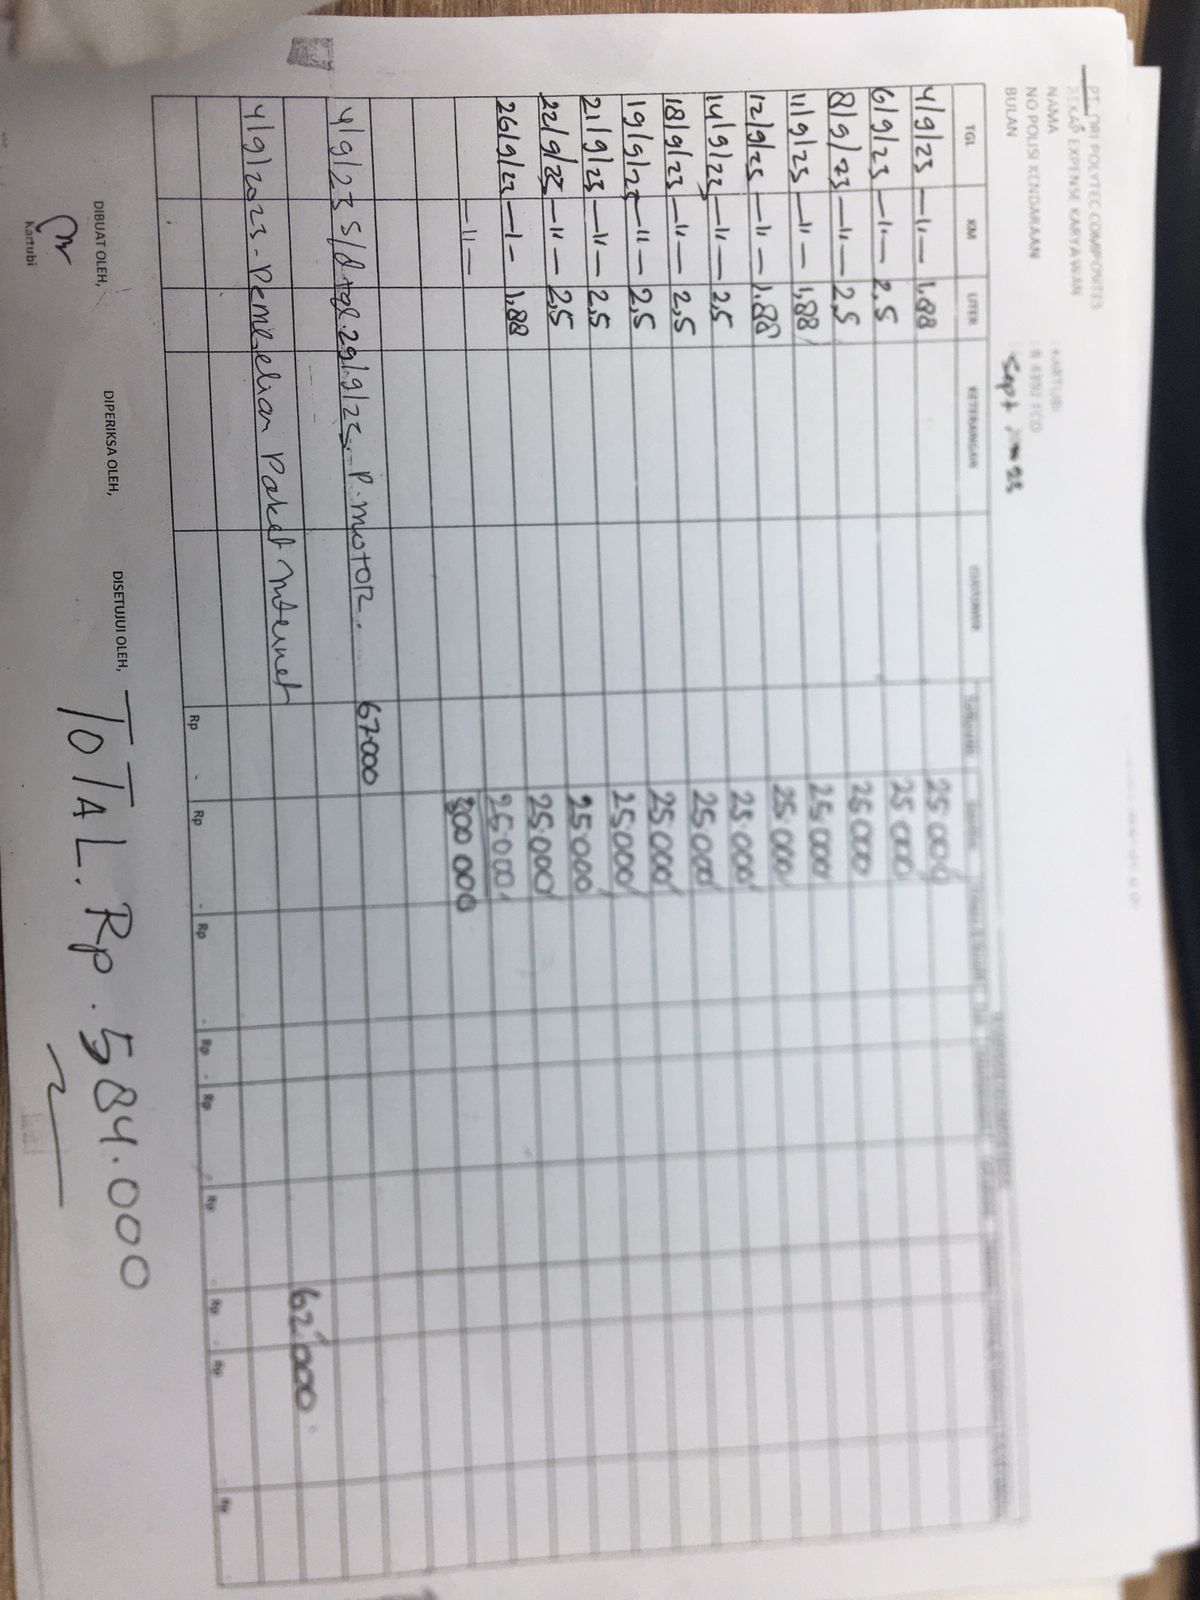 PT. DRI POLYTEC COMPONITES
REKAP EXPENSE KARYAWAN
NAMA : KARTUBI
NO POLISI KENDARAAN
BULAN Sept 23
TGL KM LITER KETERANGAN
4/9/23 —"— 1,88 25.000
6/9/23 —"— 2,5 25.000
8/9/23 —"— 2,5 25.000
11/9/23 —"— 1,88 25.000
12/9/23 —"— 1.88 25.000
14/9/23 —"— 2,5 25.000
18/9/23 —"— 2,5 25.000
19/9/23 —"— 2,5 25.000
21/9/23 —"— 2,5 25.000
22/9/23 —"— 2,5 25.000
26/9/23 —"— 1,88 25.000
—"— 300 000
4/9/23 S/d tgl. 29/9/23 P. MOTOR. 67.000
62.000
4/9/2023 - Pembelian Paket internet
Rp - Rp - Rp - Rp - Rp - Rp - Rp - Rp - Rp
DIBUAT OLEH, DIPERIKSA OLEH, DISETUJUI OLEH,
TOTAL. Rp. 584.000
Kartubi